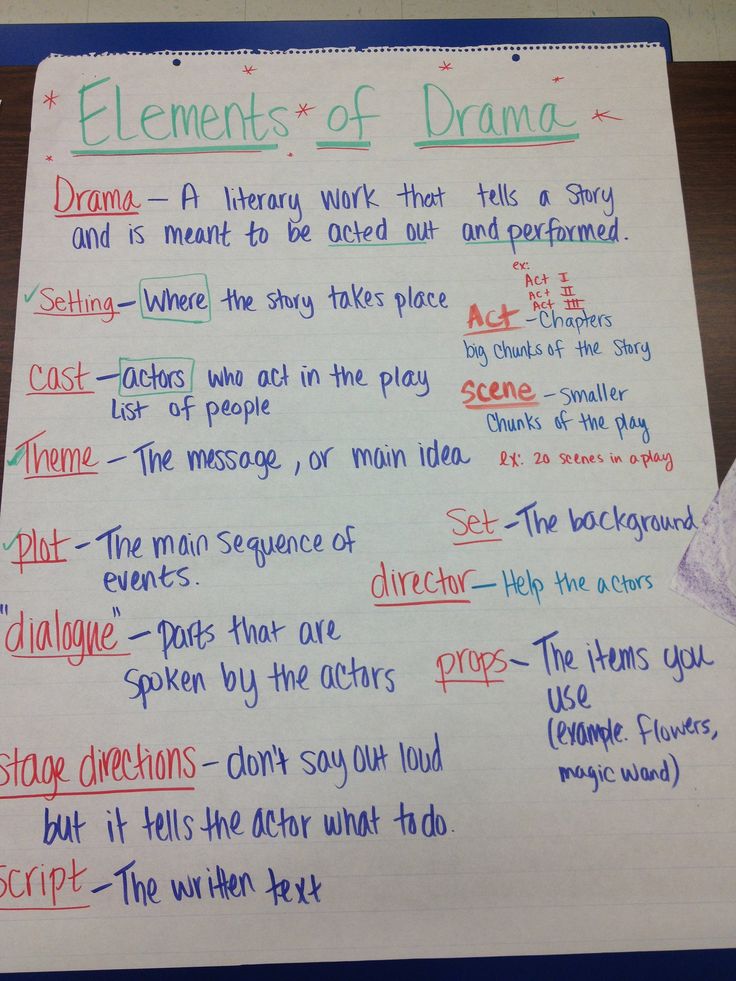 Elements of Drama
Drama - A literary work that tells a story
and is meant to be acted out and performed.
Setting - Where the story takes place
cast - actors who act in the play
List of people
Theme - The message, or main idea
plot - The main sequence of
events.
"dialogue" - parts that are
spoken by the actors
stage directions - don't say out loud
but it tells the actor what to do.
script - The written text
ex:
Act I
Act II
Act III
Act - Chapters
big chunks of the story
scene - smaller
chunks of the play
ex: 20 scenes in a play
set - The background
director - Help the actors
props - The items you
use
(example. flowers,
magic wand)